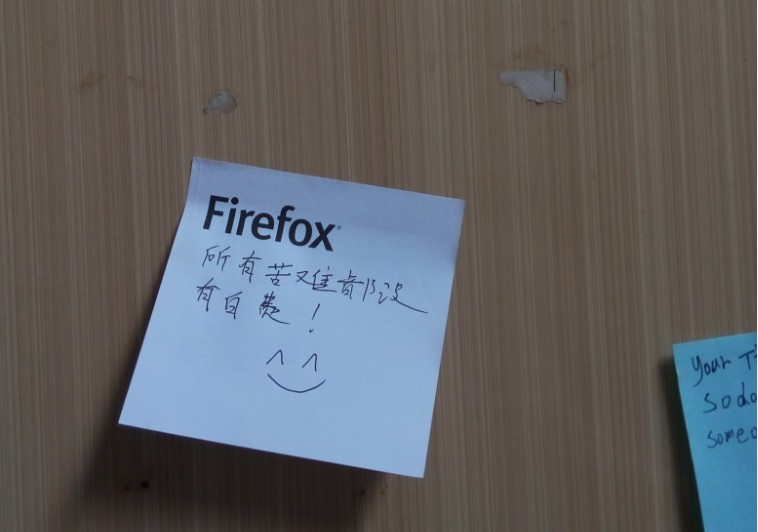 Firefox
所有苦难都没
有白费！
Your T
so do
someo